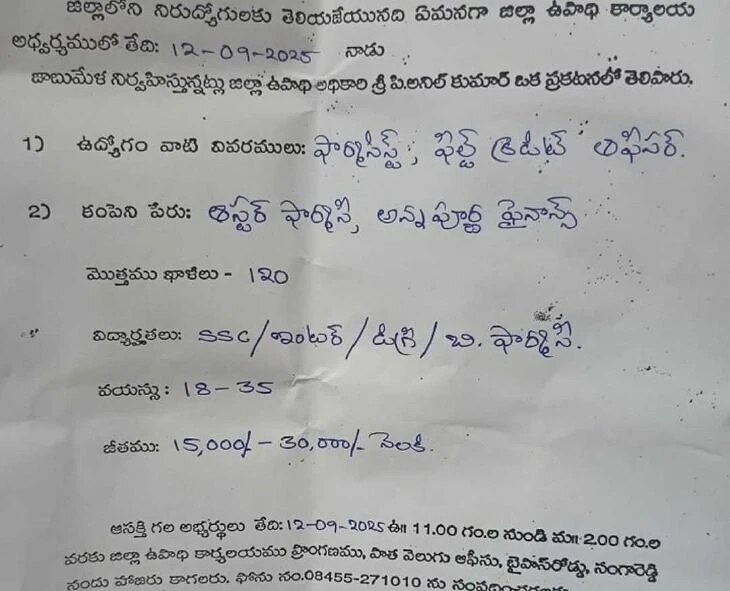 జిల్లాలోని నిరుద్యోగులకు తెలియజేయునది ఏమనగా జిల్లా ఉపాధి కార్యాలయ
అధ్వర్యములో తేది: 12-09-2025 నాడు
జాబుమేళ నిర్వహిస్తున్నట్లు జిల్లా ఉపాధి అధికారి శ్రీ పి.అనిల్ కుమార్ ఒక ప్రకటనలో తెలిపారు.
1) ఉద్యోగం వాటి వివరములు: ఫార్మసిస్ట్, ఫిల్డ్ క్రెడిట్ ఆఫిసర్.
2) కంపెని పేరు: ఆస్టర్ ఫార్మాసి, అన్నపూర్ణ ఫైనాన్స్
మొత్తము ఖాళీలు - 120
విద్యార్హతలు: SSC/ఇంటర్/డిగ్రి/బి. ఫార్మాసి.
వయస్సు: 18-35
జీతము: 15,000/- 30,000/- నెలకి.
ఆసక్తి గల అభ్యర్థులు తేది:12-09-2025 ఉ॥ 11.00 గం.ల నుండి మ॥ 2.00 గం.ల
వరకు జిల్లా ఉపాధి కార్యలయము ప్రాంగణము, పాత వెలుగు ఆఫీసు, బైపాస్‌రోడ్డు, సంగారెడ్డి
నందు హాజరు కాగలరు. ఫోను నం.08455-271010 ను